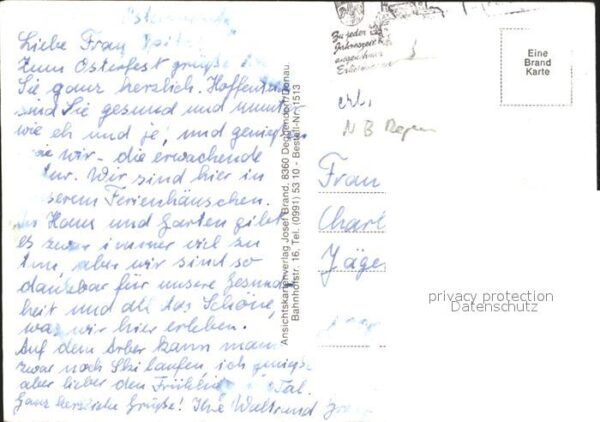 Liebe Frau
Zum Osterfest grüße
Sie ganz herzlich. Hoffentl
sind Sie gesund und munter
wie eh und je, und genieß
wie wir - die erwachende
tur. Wir sind hier in
serem Ferienhäuschen.
Haus und Garten gibt
es zwar immer viel zu
tun, aber wir sind so
dankbar für unsere Gesund
heit und all das Schöne,
was wir hier erleben.
Auf dem Arber kann man
zwar noch Ski laufen, ich genieß
aber lieber den Frühling Tal.
Ganz herzliche Grüße! Ihre Waltraud
Ansichtskartenverlag Josef Brand, 8360 Deggendorf/Donau
Bahnhofstr. 16, Tel. (0991) 53 10 - Bestell-Nr. 1513
Zu jeder
Jahreszeit
Eine
Brand
Karte
N B
Frau
Charl
Jäge
privacy protection
Datenschutz